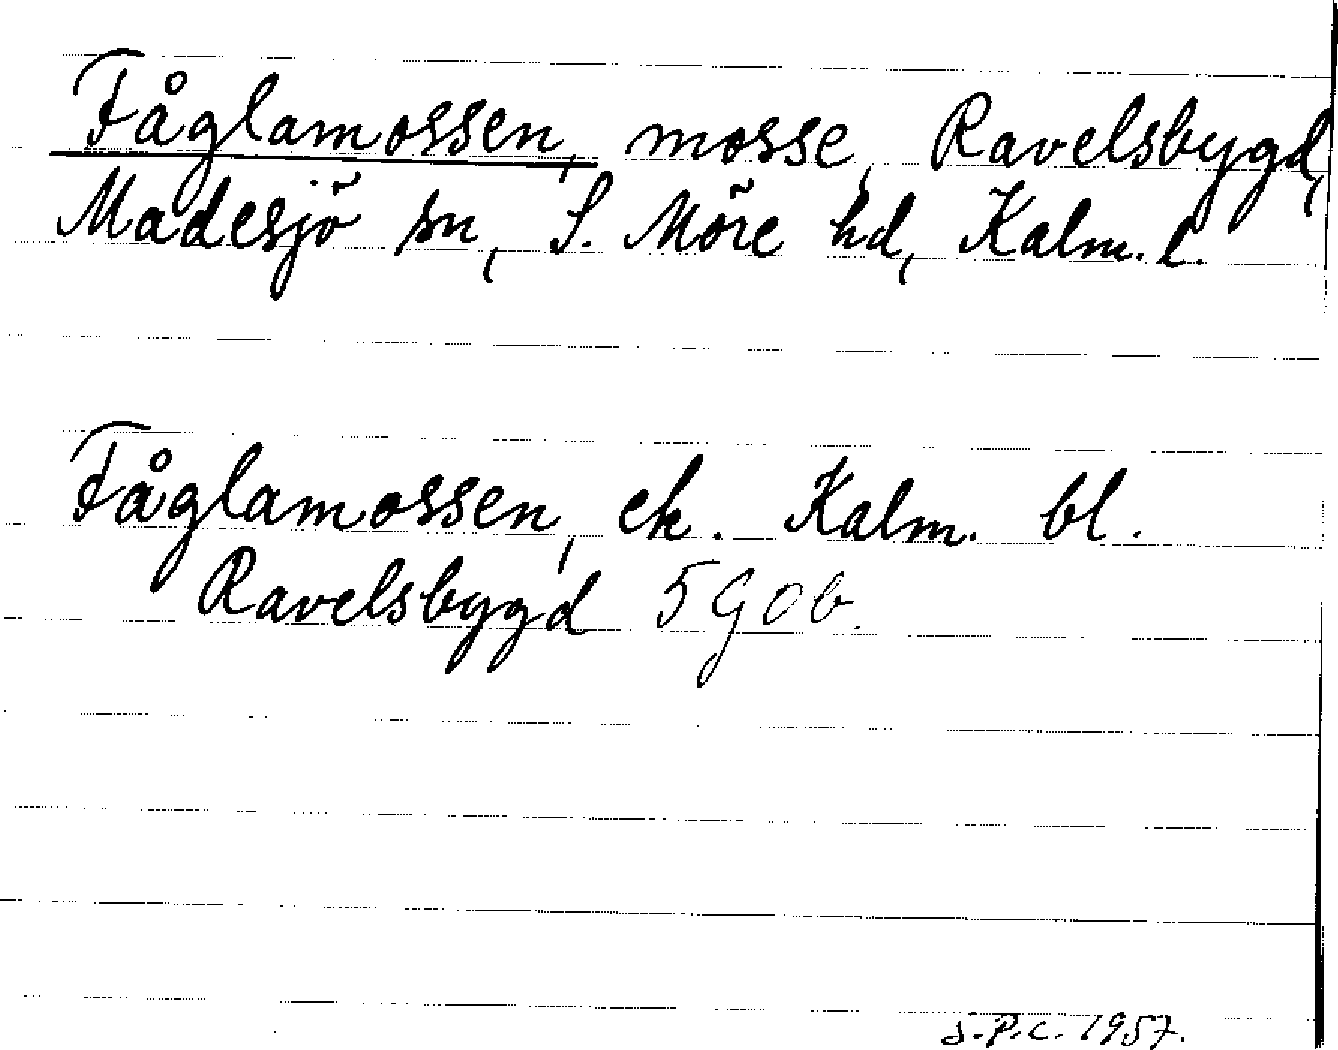 Fåglamossen, mosse, Ravelsbygd,
Madesjö sn, S. Möre hd, Kalm. l.
Fåglamossen, ek. Kalm. bl.
Ravelsbygd 5 G 0 b.
S.P.C. 1957.